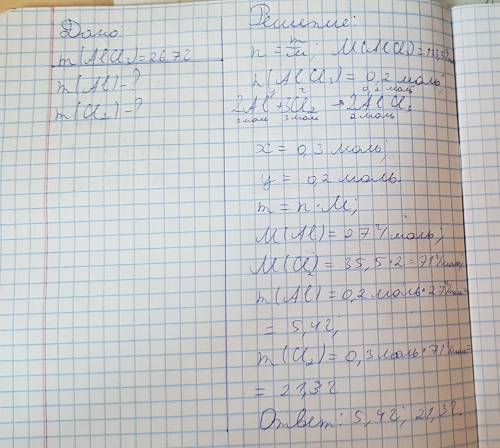 Дано:
m(AlCl₃)=26,7г
m(Al)-?
m(Cl₂)-?
Решение:
n = m/M; M(AlCl₃)=133,5
n(AlCl₃) = 0,2 моль;
y x 0,2 моль
2Al + 3Cl₂ → 2AlCl₃
2 моль 3 моль 2 моль
x = 0,3 моль;
y = 0,2 моль.
m = n · M;
M(Al) = 27 г/моль;
M(Cl₂) = 35,5 · 2 = 71 г/моль;
m(Al) = 0,2 моль · 27 г/моль =
= 5,4г;
m(Cl₂) = 0,3 моль · 71 г/моль =
= 21,3г
Ответ: 5,4г; 21,3г.